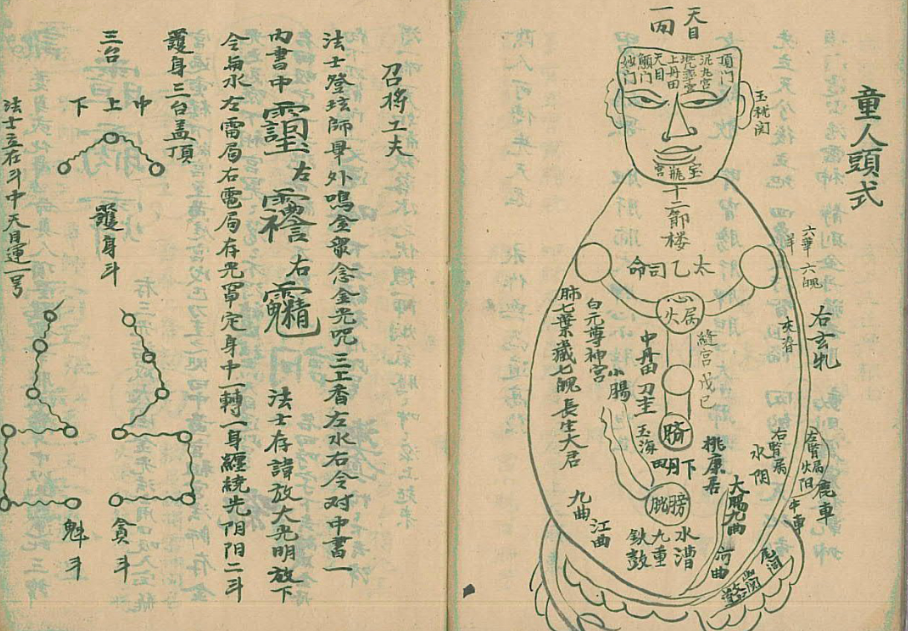 童人頭式
天目
一丙
頂門
泥丸宮
上丹田
天目
顖門
玉枕関
宝瓶宮
十二節楼
太乙司命
六華六魄
右玄牝
夾脊
心属火
絳宮戊己
中丹田刀圭
白元尊神宮
肺七葉藏七魄長生大君
小腸
玉海
臍
下田
桃康居
膀胱
水漕
九重
鉄鼓
九曲
江曲
大腸九曲
河曲
右腎属
水阴
左腎属
火阳
鹿車
中車
尾閭
召将工夫
法士登玹師畢外鳴金衆念金光咒三上香左水右令对中書一
丙書中
左
右
法士存諱放大光明放下
令与水左雷局右電局存光罩定身中一轉一身纏繞先阴阳二斗
護身三台盖頂
三台
中
上
下
護身斗
貪斗
魁斗
法士立在斗中天目運一号